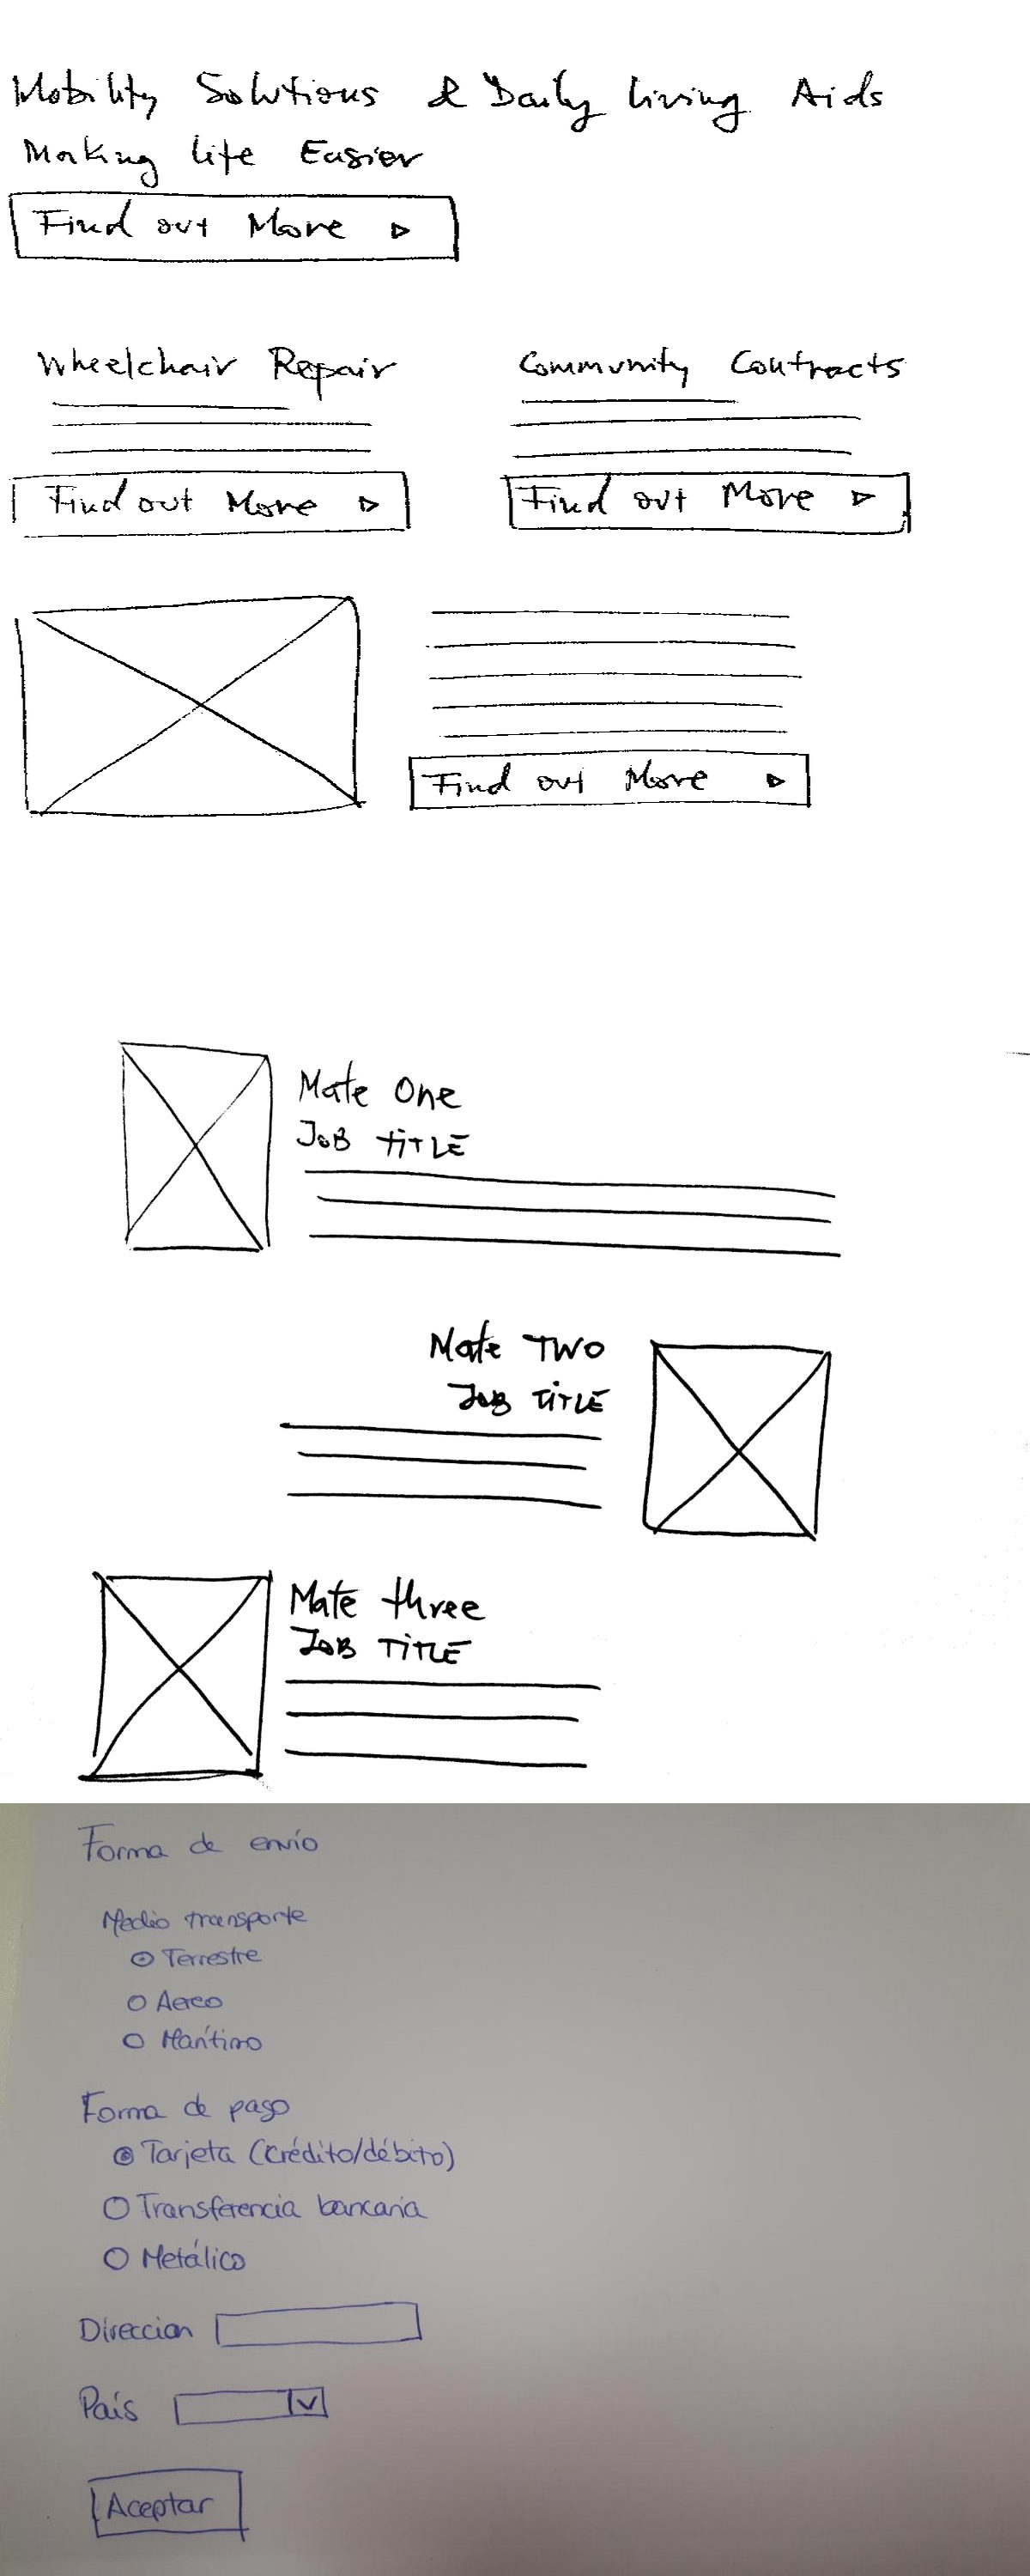 Mobility Solutions & Daily living Aids
Making life Easier
Find out More
Wheelchair Repair
Community Contracts
Find out More
Find out More
Find out More
Mate One
JOB TiTLE
Mate TWO
JOB TiTLE
Mate three
JOB TiTLE
Forma de envío
Medio transporte
Terrestre
Aereo
Marítimo
Forma de pago
Tarjeta (crédito/débito)
Transferencia bancaria
Metálico
Direccion
País
Aceptar